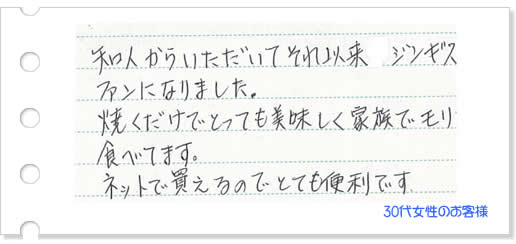 知人からいただいてそれ以来 ジンギス
ファンになりました。
焼くだけでとっても美味しく家族でモリ
食べてます。
ネットで買えるのでとても便利です
30代女性のお客様